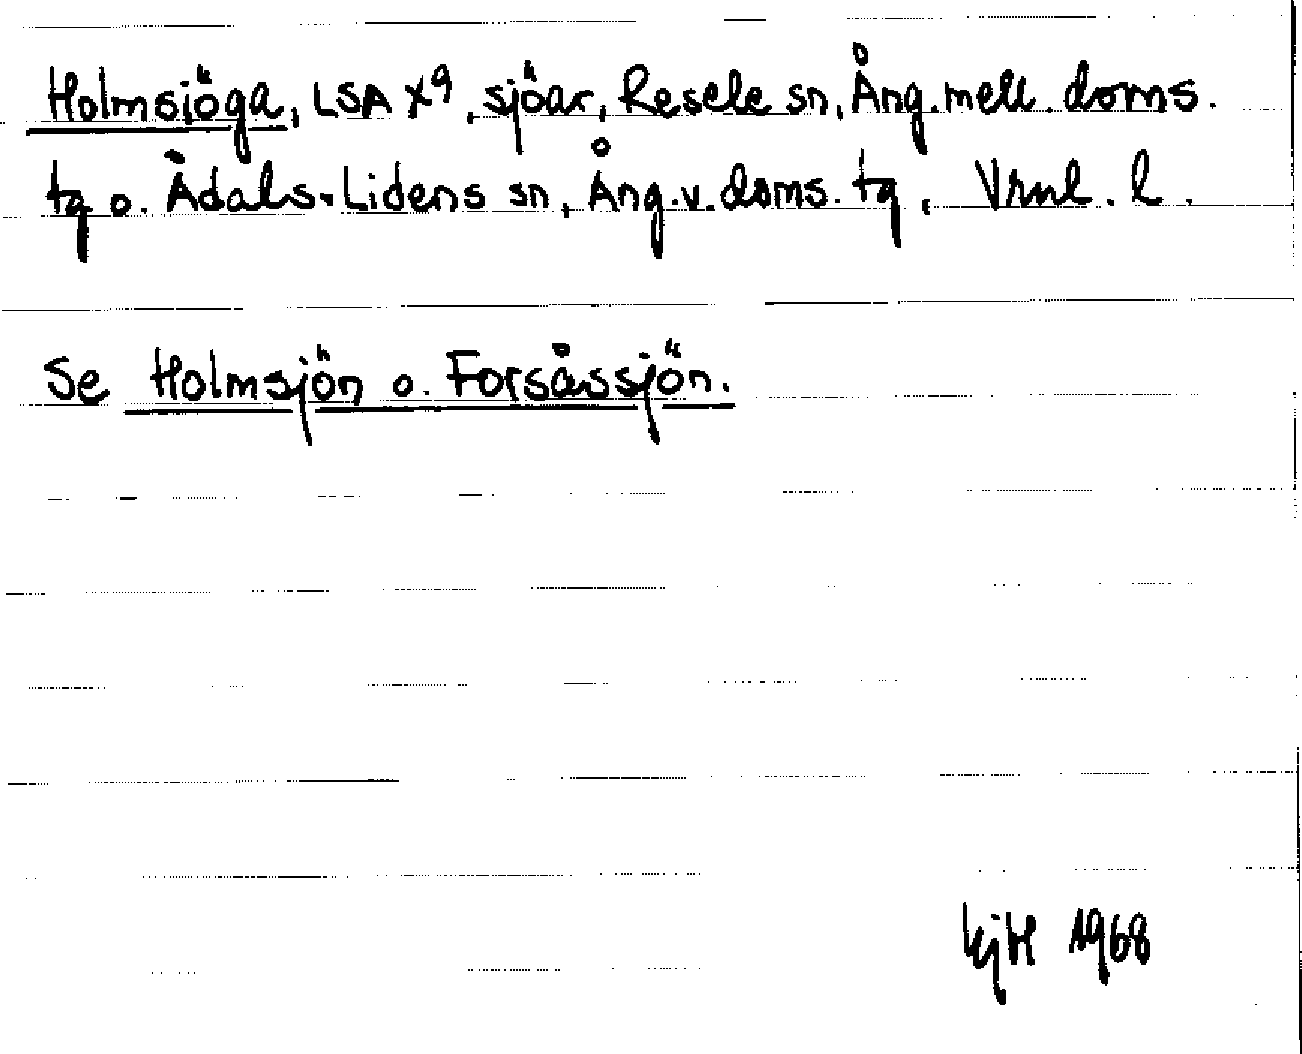 Holmsiöga, LSA X9, sjöar, Resele sn, Ång. mell. doms.
tg o. Ådals-Lidens sn, Ång. v. doms. tg, Vrnl. l.
Se Holmsjön o. Forsåssjön.
1968